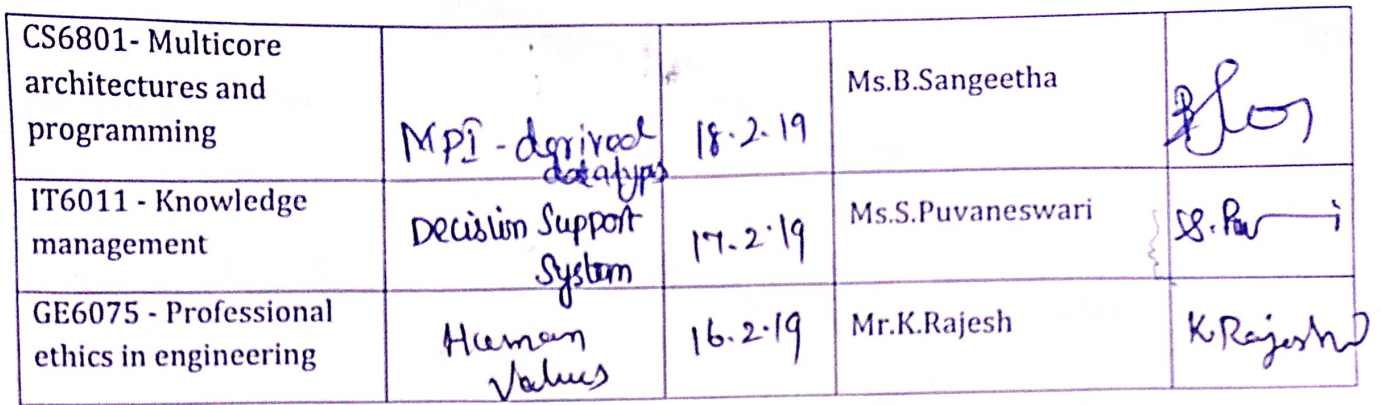 CS6801- Multicore
architectures and
programming
MPI - derived
datatypes
18.2.19
Ms.B.Sangeetha
IT6011 - Knowledge
management
Decision Support
System
17.2.19
Ms.S.Puvaneswari
GE6075 - Professional
ethics in engineering
Human
Values
16.2.19
Mr.K.Rajesh
K Rajesh